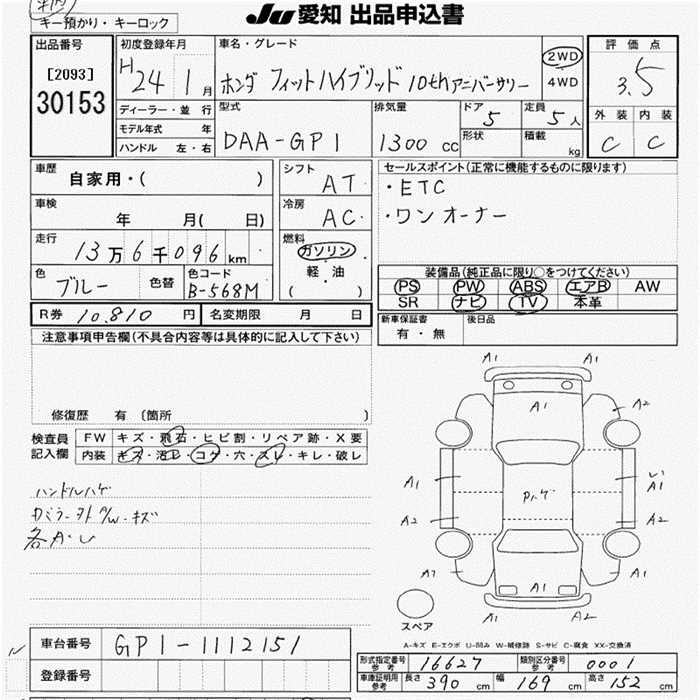 JU愛知 出品申込書
キー預かり・キーロック
出品番号
[2093]
30153
初度登録年月
H24 1月
車名・グレード
ホンダ フィットハイブリッド 10thアニバーサリー
2WD
4WD
評価点
3.5
外装 内装
C C
ディーラー・並行
モデル年式 年
ハンドル 左・右
型式
DAA-GP1
排気量
1300 cc
ドア
5
形状
定員
5人
積載
kg
車歴
自家用・( )
車検
年 月( 日)
走行
13万6千096km
色
ブルー
色替
色コード
B-568M
シフト
AT
冷房
AC
燃料
ガソリン
・
軽・油
( )
セールスポイント(正常に機能するものに限ります)
・ETC
・ワンオーナー
装備品(純正品に限り○をつけてください)
PS PW ABS エアB AW
SR ナビ TV 本革
R券 10.810 円 名変期限 月 日
新車保証書
有・無
後日品
注意事項申告欄(不具合内容等は具体的に記入して下さい)
修復歴 有 (箇所 )
検査員
記入欄
FW キズ・飛石・ヒビ割・リペア跡・X要
内装 キズ・汚レ・コゲ・穴・スレ・キレ・破レ
ハンドルハゲ
A/W・キズ
A1 A1
A1 A2
A1 A1
A2 A2
A1 A1
A1 A2
スペア
A-キズ E-エクボ U-凹み W-補修跡 S-サビ C-腐食 XX-交換済
車台番号 GP1-1112151
登録番号
形式指定番号
参考
16627
類別区分番号
参考
0001
車庫証明用
参考
長さ 390 cm 幅 169 cm 高さ 152 cm